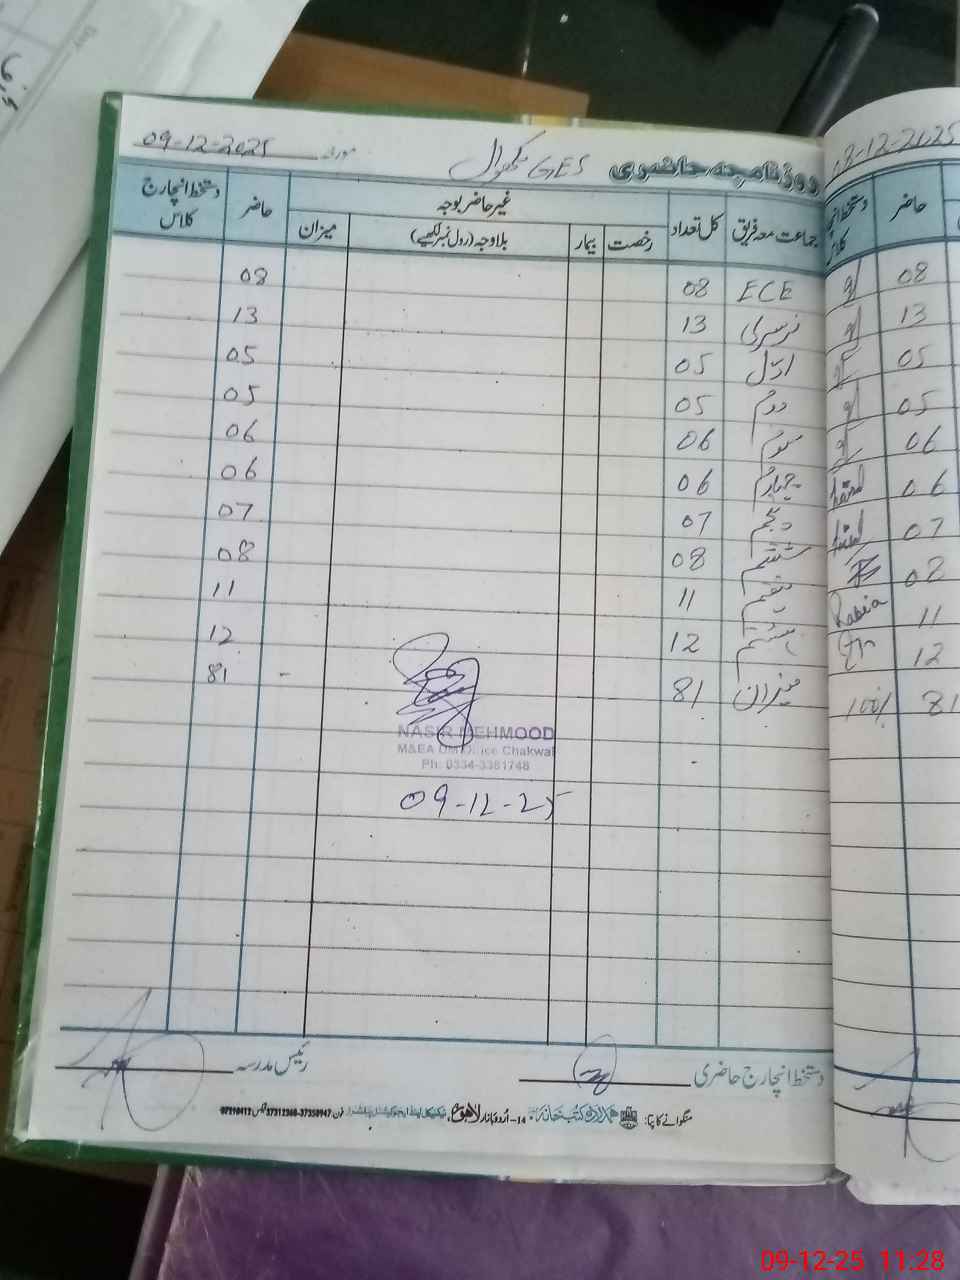 روزنامچہ حاضری GES بھگوال مورخہ 09-12-2025
جماعت معہ فریق کل تعداد غیر حاضر بوجہ حاضر دستخط انچارج کلاس
رخصت بیمار بلاوجہ (رول نمبر لکھیے) میزان
ECE 08 08
نرسری 13 13
اول 05 05
دوم 05 05
سوم 06 06
چہارم 06 06
پنجم 07 07
ششم 08 08
ہفتم 11 11
ہشتم 12 12
میزان 81 - 81
NASIR MEHMOOD
M&EA DM Office Chakwal
Ph: 0334-3381748
09-12-25
دستخط انچارج حاضری رئیس مدرسہ
منگوانے کا پتا: ہمدرد کتب خانہ 14-اُردو بازار لاہور
-12-2025
حاضر
08
13
05
05
06
06
07
08
Rabia 11
12
100% 81
09-12-25 11:28